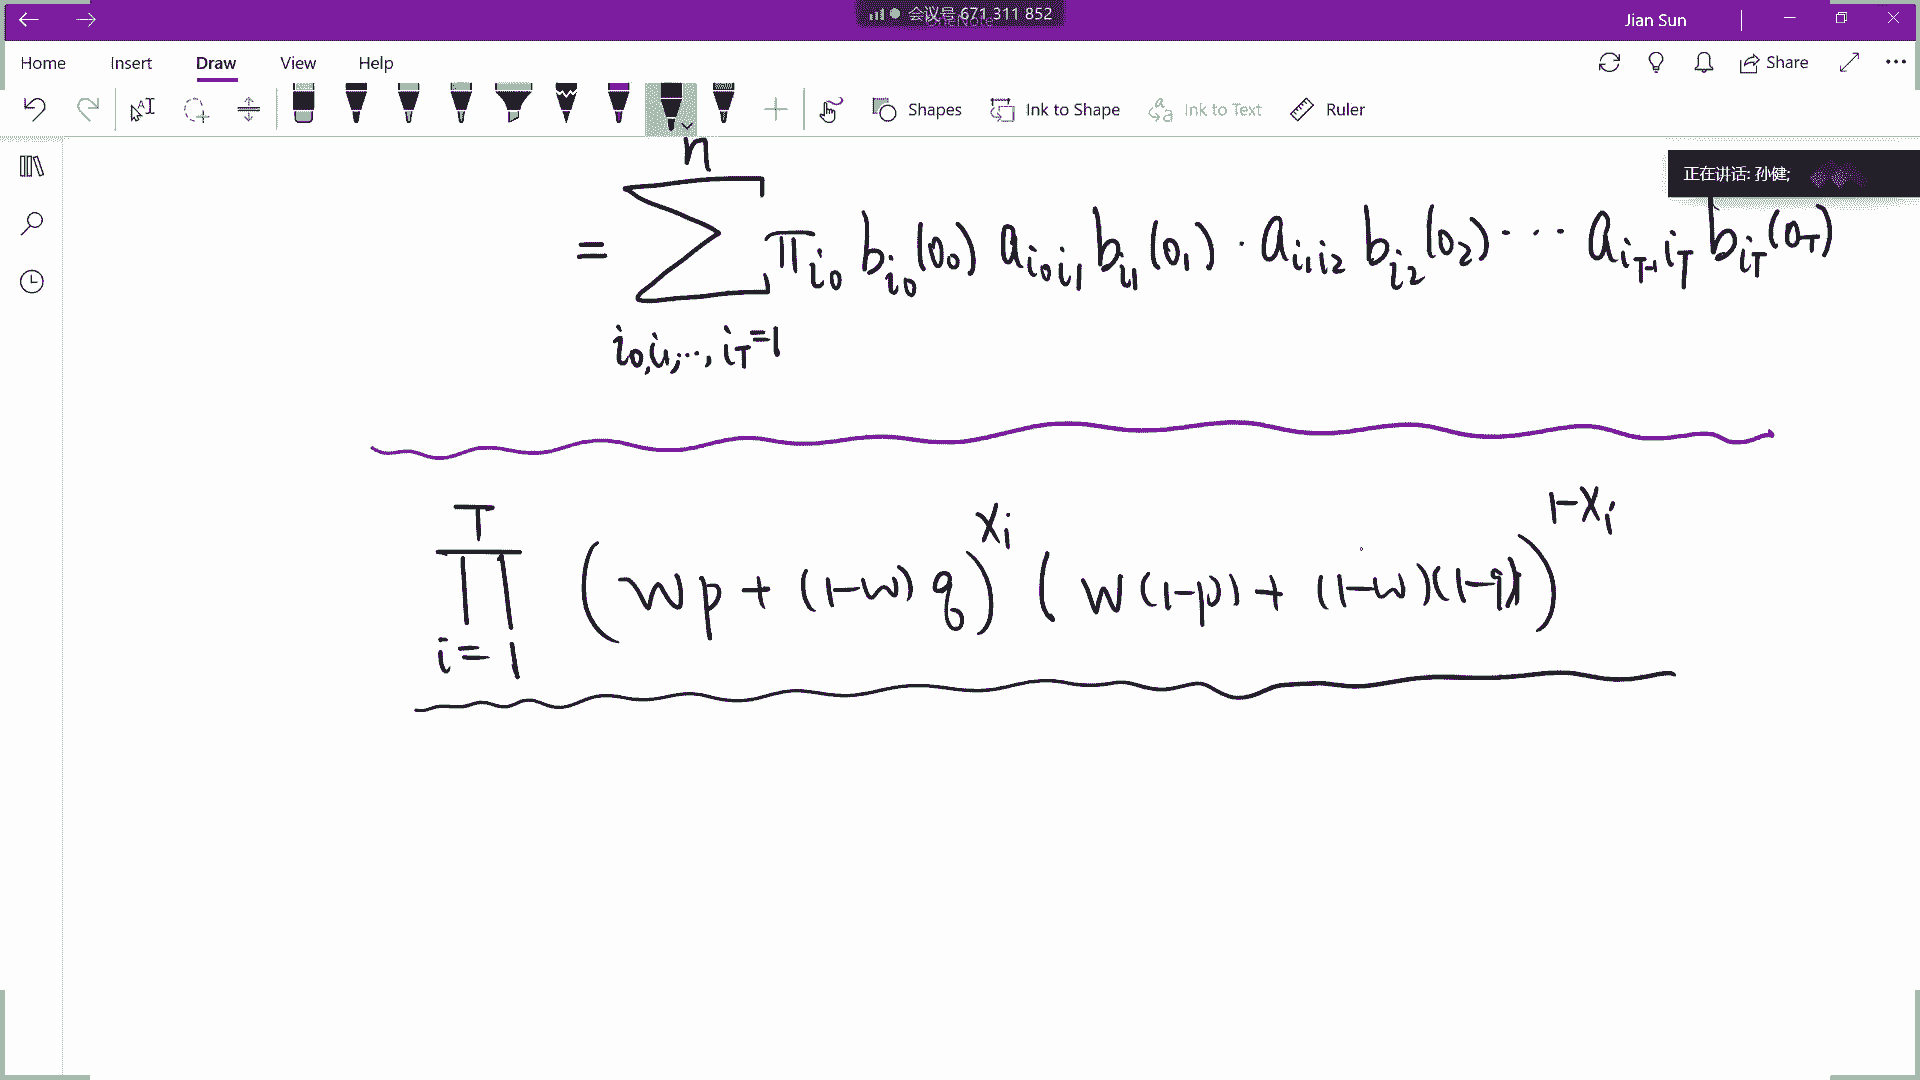 会议号 671 311 852
Jian Sun
Home Insert Draw View Help
Share
Shapes Ink to Shape Ink to Text Ruler
正在讲话: 孙健;
n
= ∑ π_{i_0} b_{i_0}(o_0) a_{i_0 i_1} b_{i_1}(o_1) · a_{i_1 i_2} b_{i_2}(o_2) ··· a_{i_{T-1} i_T} b_{i_T}(o_T)
i_0, i_1, ..., i_T = 1
T
∏ (wp + (1-w) q)^{x_i} (w(1-p) + (1-w)(1-q))^{1-x_i}
i = 1